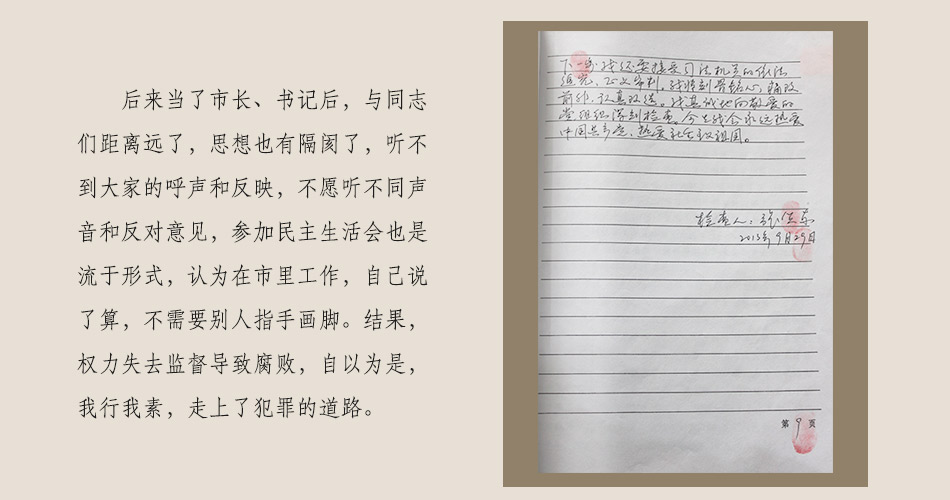 后来当了市长、书记后，与同志
们距离远了，思想也有隔阂了，听不
到大家的呼声和反映，不愿听不同声
音和反对意见，参加民主生活会也是
流于形式，认为在市里工作，自己说
了算，不需要别人指手画脚。结果，
权力失去监督导致腐败，自以为是，
我行我素，走上了犯罪的道路。
下一步我还要接受司法机关的依法
追究、正义审判，我将刻骨铭心，痛改
前非，认真改造。我真诚地向敬爱的
党组织深刻检查，今生我会永远热爱
中国共产党，热爱社会主义祖国。
检查人：张
2015年9月29日
第 9 页